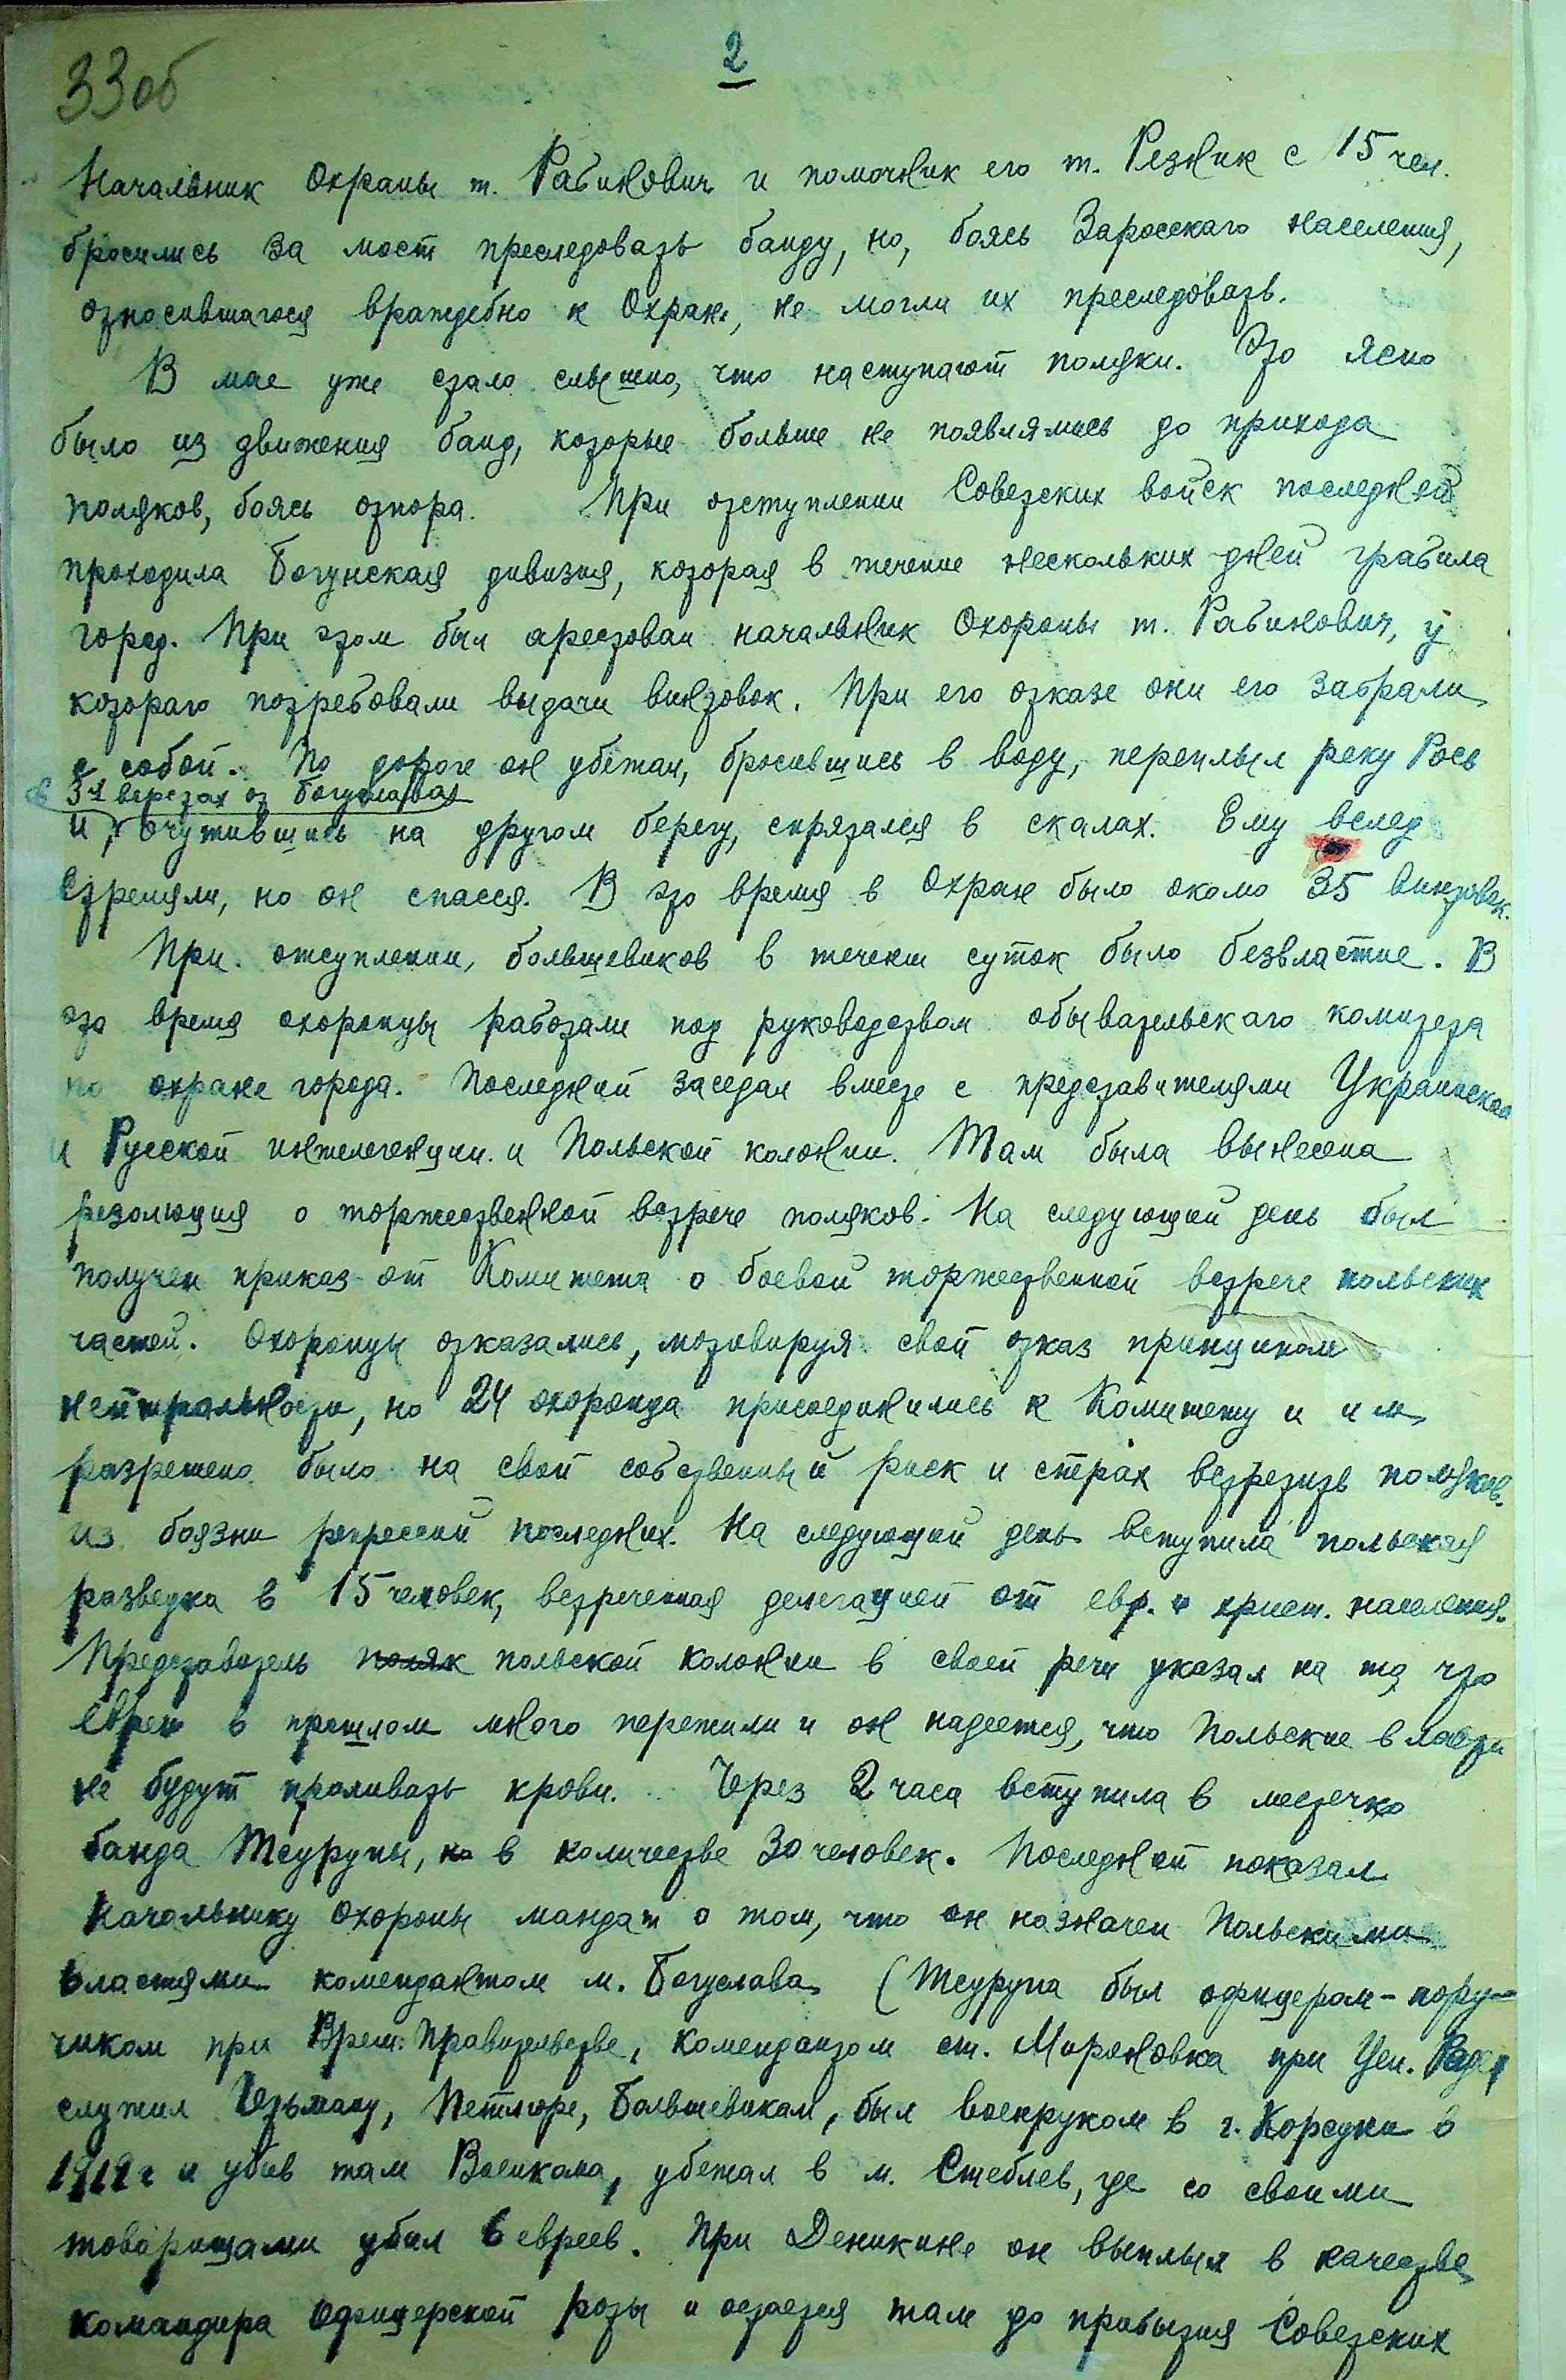 33об
2
Начальник Охраны т. Рабинович и помочник его т. Резник с 15 чел.
бросились за мост преследовать банду, но, боясь Заросскаго населения,
относившагося враждебно к Охране, не могли их преследовать.
В мае уже стало слышно, что наступают поляки. Это ясно
было из движения банд, которые больше не появлялись до прихода
поляков, боясь отпора. При отступлении Советских войск последней
проходила Богунская дивизия, которая в течение нескольких дней грабила
город. При этом был арестован начальник Охороны т. Рабинович, у
котораго потребовали выдачи винтовок. При его отказе они его забрали
с собой. По дороге он убежал, бросившись в воду, переплыл реку Рось
в 3х верстах от Богуслава
и, очутившись на другом берегу, спрятался в скалах. Ему вслед
стреляли, но он спасся. В это время в Охране было около 35 винтовок.
При отступлении большевиков в течении суток было безвластие. В
это время охоронцы работали под руководством обывательскаго комитета
по охране города. Последний заседал вместе с представителями Украинской
и Русской интелегенции и Польской колонии. Там была вынесена
резолюция о торжественной встрече поляков. На следующий день был
получен приказ от Комитета о боевой торжественной встрече польских
частей. Охоронцы отказались, мотивируя свой отказ принципом
нейтральности, но 24 охоронца присоединились к Комитету и им
разрешено было на свой собственный риск и страх встретить поляков
из боязни репрессий последних. На следующий день вступила польская
разведка в 15 человек, встреченная делегацией от евр. и христ. населения.
Представитель поляк польской колонии в своей речи указал на то, что
евреи в прошлом много пережили и он надеется, что Польские власти
не будут проливать крови. Через 2 часа вступила в местечко
банда Тсурупы, но в количестве 30 человек. Последний показал
Начальнику Охороны мандат о том, что он назначен Польскими
властями комендантом м. Богуслава (Тсурупа был офицером-пору-
чиком при Врем. Правительстве, комендантом ст. Мироновка при Цен. Раде,
служил Гетьману, Петлюре, Большевикам, был военруком в г. Корсуни в
1919 г и убив там Военкома, убежал в м. Стеблев, где со своими
товарищами убил 6 евреев. При Деникине он выплыл в качестве
командира Офицерской роты и остается там до прибытия Советских